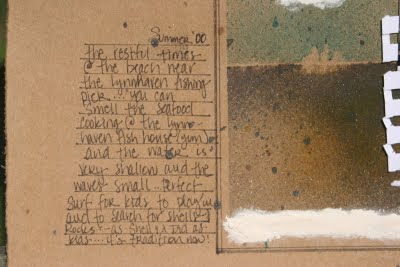 Summer '00
the restful times
@ the beach near
the Lynnhaven fishing
pier... you can
smell the seafood
cooking @ the Lynn-
haven fish house (yum)
and the water is
very shallow and the
waves small. perfect
surf for kids to play in
and to search for shells &
Rocks - as Shelly & I did as
kids.... it's tradition now!